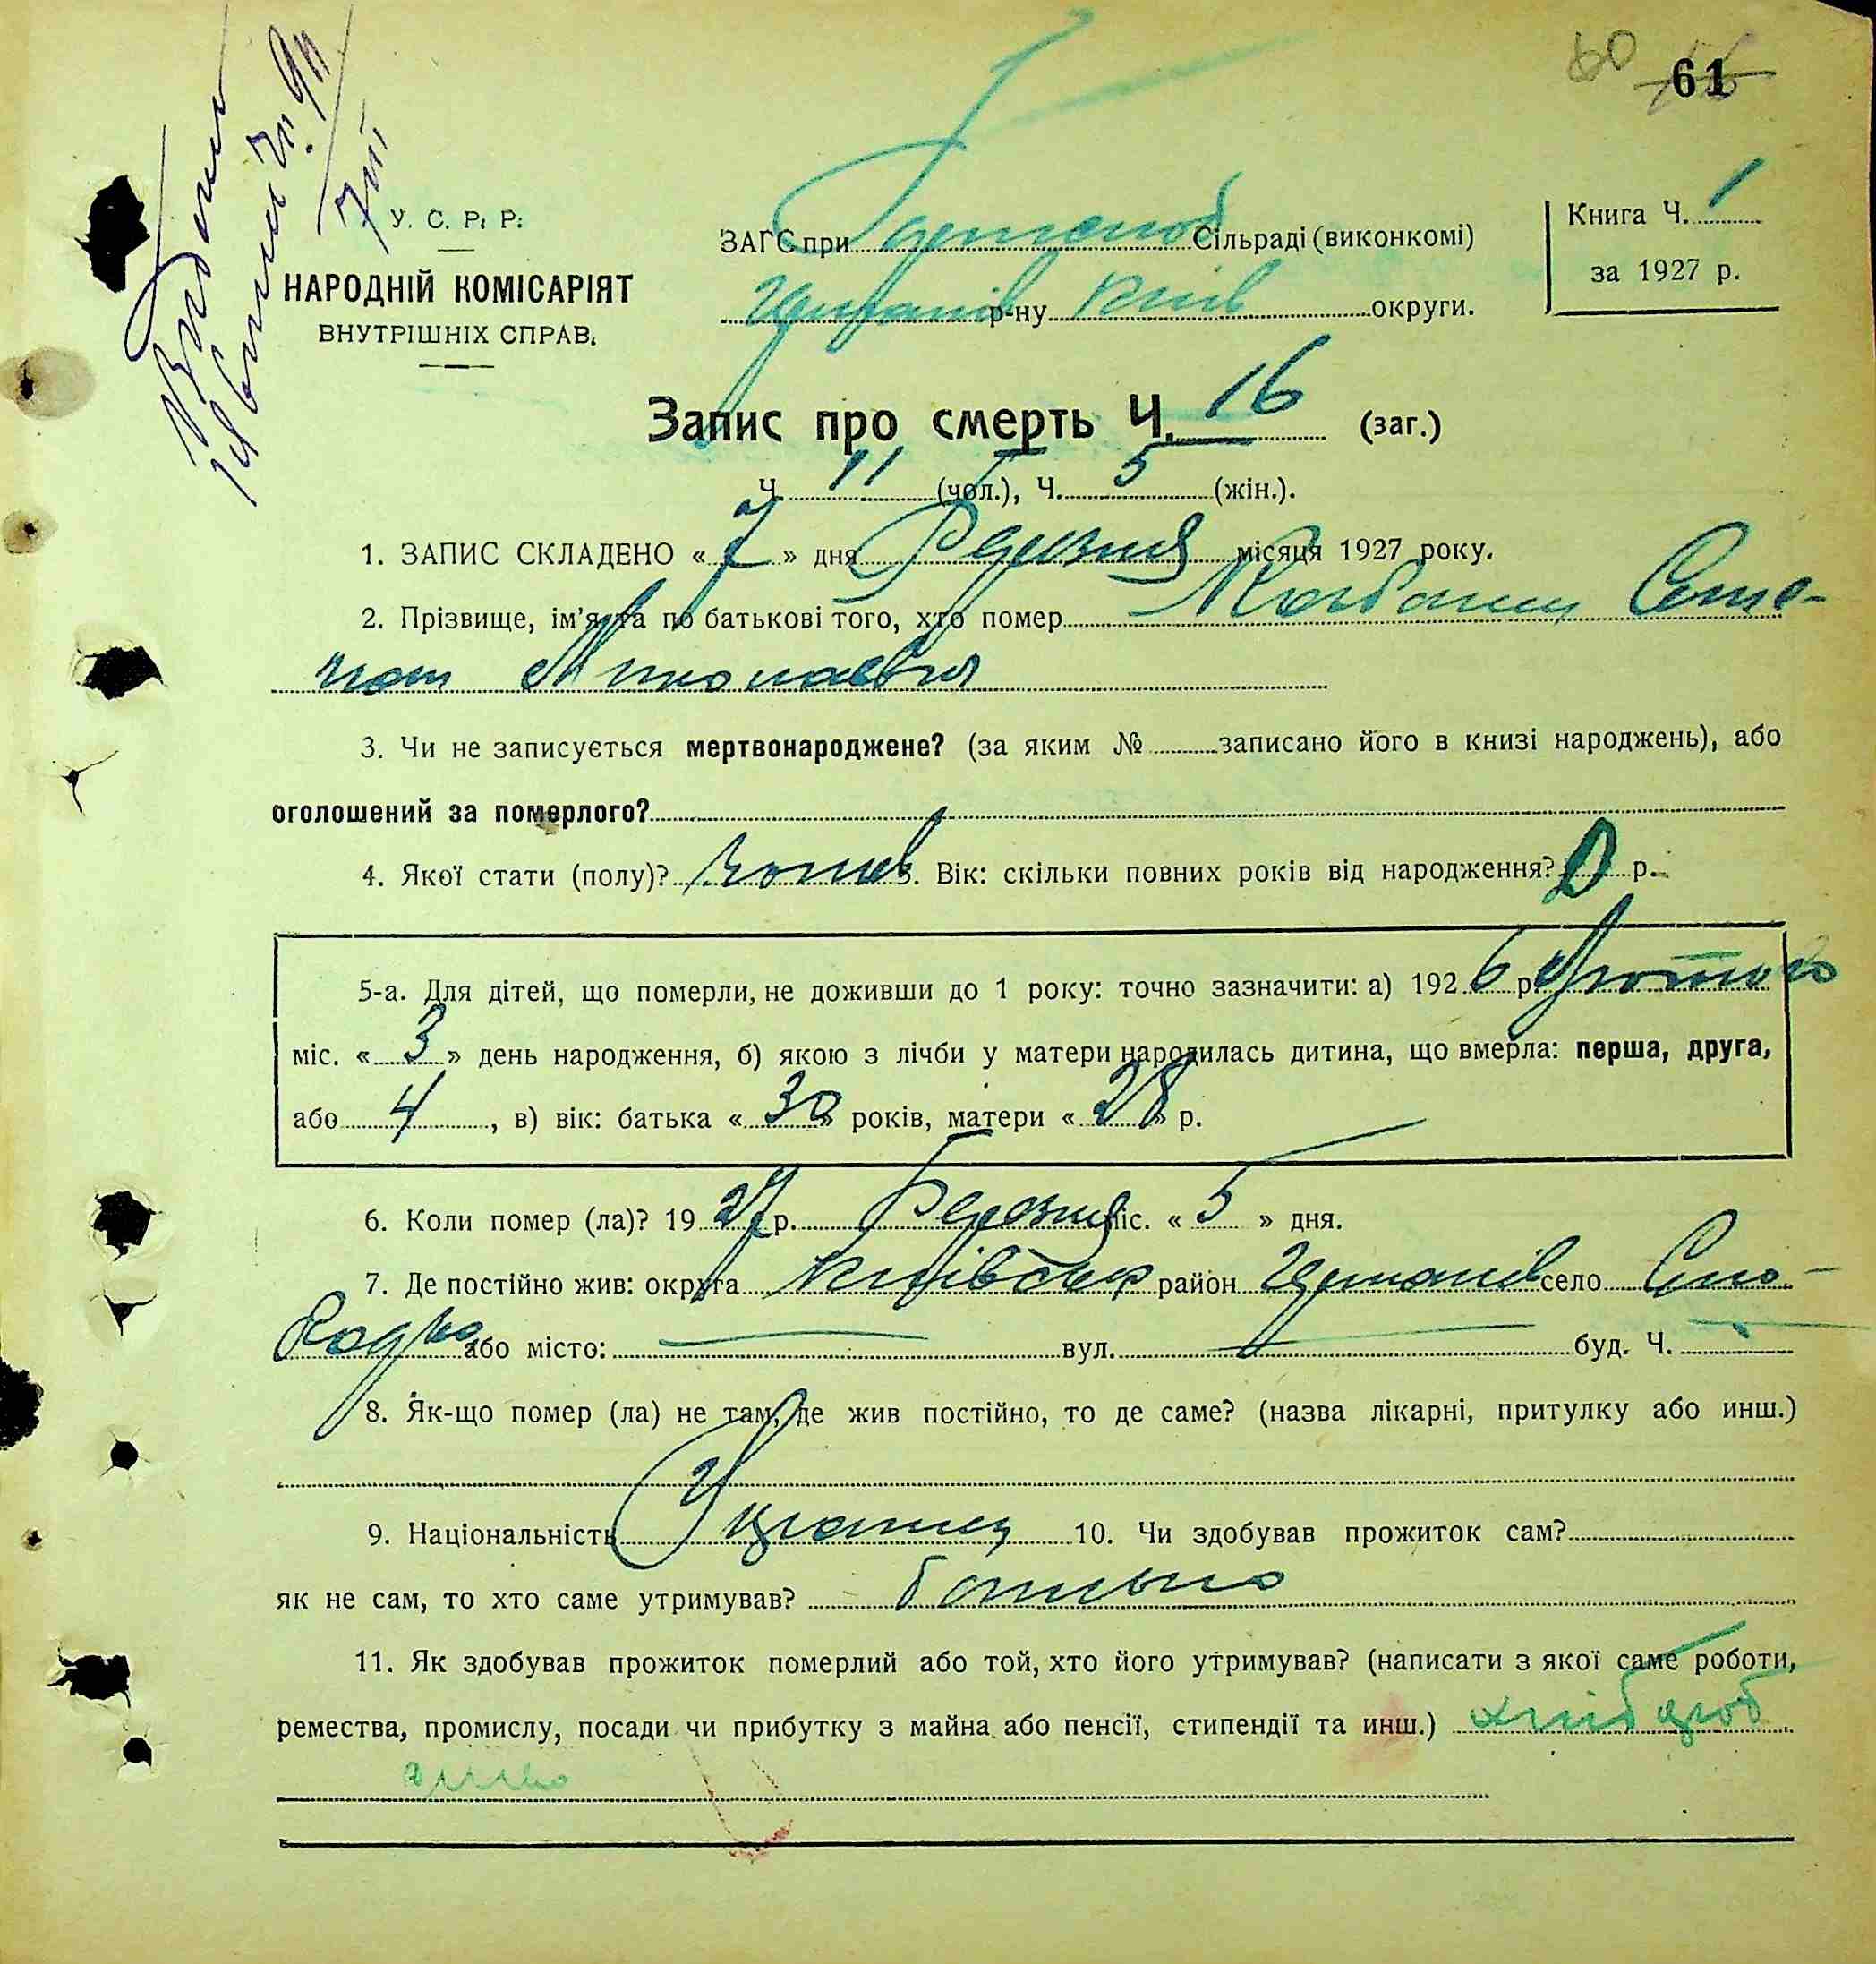 60 61
У. С. Р. Р.
НАРОДНІЙ КОМІСАРІЯТ
ВНУТРІШНІХ СПРАВ.
ЗАГС при Сільраді (виконкомі)
р-ну Київ округи.
Книга Ч. 1
за 1927 р.
Запис про смерть Ч. 16 (заг.)
Ч. 11 (чол.), Ч. 5 (жін.).
1. ЗАПИС СКЛАДЕНО « 7 » дня Березня місяця 1927 року.
2. Прізвище, ім'я та по батькові того, хто помер
Миколаевич
3. Чи не записується мертвонароджене? (за яким № записано його в книзі народжень), або
оголошений за померлого?
4. Якої стати (полу)? 5. Вік: скільки повних років від народження? 0 р.
5-а. Для дітей, що померли, не доживши до 1 року: точно зазначити: а) 1926 р. Лютого
міс. « 3 » день народження, б) якою з лічби у матери народилась дитина, що вмерла: перша, друга,
або 4, в) вік: батька « 30 » років, матери « 28 » р.
6. Коли помер (ла)? 1927 р. Березня міс. « 5 » дня.
7. Де постійно жив: округа Київськ район село
або місто: — вул. — буд. Ч. —
8. Як-що помер (ла) не там, де жив постійно, то де саме? (назва лікарні, притулку або инш.)
9. Національність Украинец 10. Чи здобував прожиток сам?
як не сам, то хто саме утримував? батько
11. Як здобував прожиток померлий або той, хто його утримував? (написати з якої саме роботи,
ремества, промислу, посади чи прибутку з майна або пенсії, стипендії та инш.) хлібороб